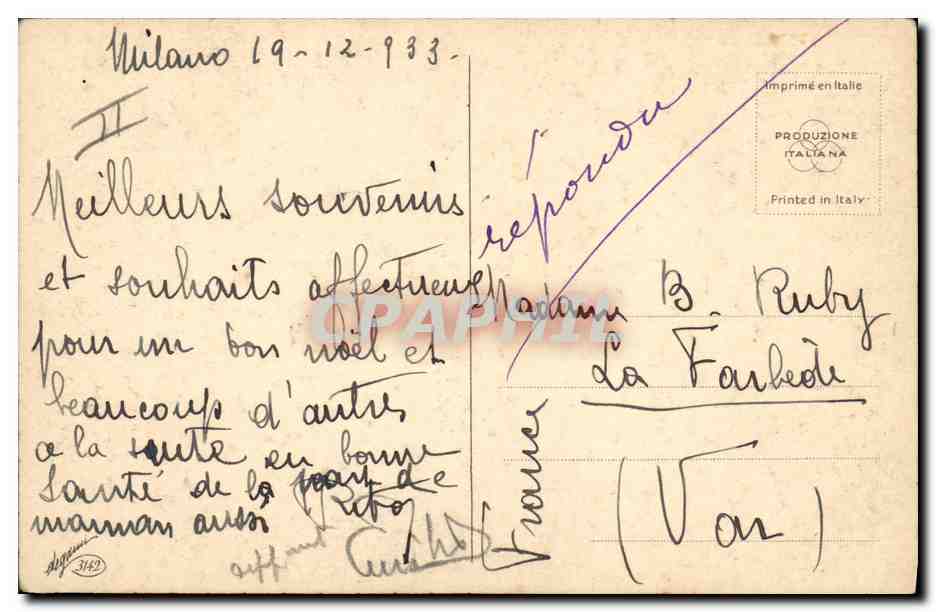 Milano 19-12-933.
II
Meilleurs souvenirs
et souhaits affectueux
pour un bon noël et
beaucoup d'autres
a la santé en bonne
Santé de la part de
maman aussi
répondu
Imprimé en Italie
PRODUZIONE
ITALIANA
Printed in Italy
Madame B. Ruby
La Farlède
(Var)
France
3142
CPAPHIL